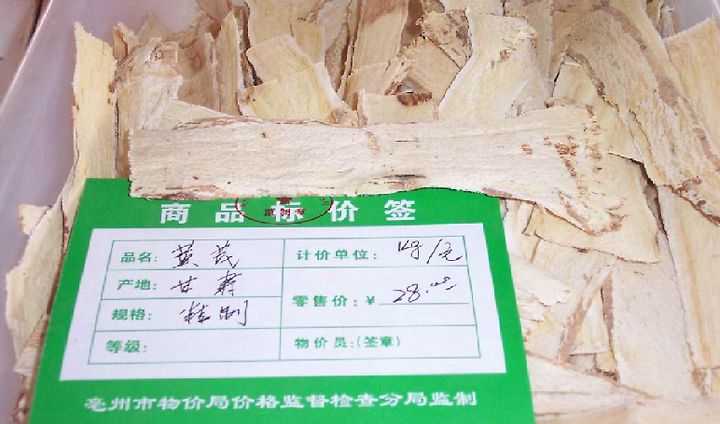 商品标价签
品名: 黄芪 计价单位: kg/元
产地: 甘肃
零售价: ¥ 28.00
规格: 精制
等级: 物价员:(签章)
亳州市物价局价格监督检查分局监制